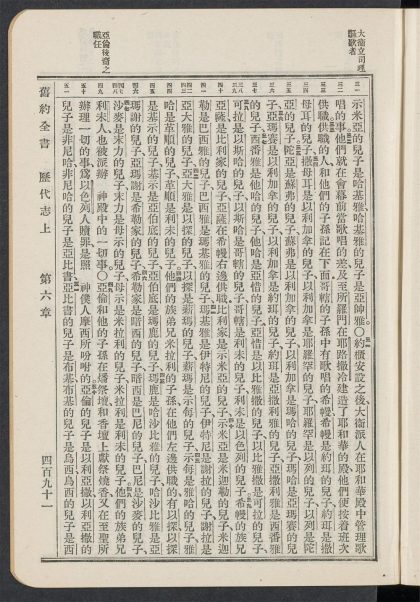 大衛立司理
謳歌者
亞倫後裔之
職任
示米亞的兒子是哈基雅、哈基雅的兒子是亞帥雅○約櫃安設之後、大衛派人在耶和華殿中管理歌
唱的事、他們就在會幕前當歌唱的差、及至所羅門在耶路撒冷建造了耶和華的殿、他們便按着班次
供職、供職的人和他們的子孫記在下面、哥轄的子孫中有歌唱的希幔、希幔是約珥的兒子、約珥是撒
母耳的兒子、撒母耳是以利加拿的兒子、以利加拿是耶羅罕的兒子、耶羅罕是以列的兒子、以列是陀
亞的兒子、陀亞是蘇弗的兒子、蘇弗是以利加拿的兒子、以利加拿是瑪哈的兒子、瑪哈是亞瑪賽的兒
子、亞瑪賽是以利加拿的兒子、以利加拿是約珥的兒子、約珥是亞撒利雅的兒子、亞撒利雅是西番雅
的兒子、西番雅是他哈的兒子、他哈是亞惜的兒子、亞惜是以比雅撒的兒子、以比雅撒是可拉的兒子、
可拉是以斯哈的兒子、以斯哈是哥轄的兒子、哥轄是利未的兒子、利未是以色列的兒子、希幔的族兄
亞薩是比利家的兒子、亞薩在希幔右邊供職、比利家是示米亞的兒子、示米亞是米迦勒的兒子、米迦
勒是巴西雅的兒子、巴西雅是瑪基雅的兒子、瑪基雅是伊特尼的兒子、伊特尼是謝拉的兒子、謝拉是
亞大雅的兒子、亞大雅是以探的兒子、以探是薪瑪的兒子、薪瑪是示每的兒子、示每是雅哈的兒子、雅
哈是革順的兒子、革順是利未的兒子、他們的族弟兄米拉利的子孫在他們左邊供職的有以探、以探
是基示的兒子、基示是亞伯底的兒子、亞伯底是瑪鹿的兒子、瑪鹿是哈沙比雅的兒子、哈沙比雅是亞
瑪謝的兒子、亞瑪謝是希勒家的兒子、希勒家是暗西的兒子、暗西是巴尼的兒子、巴尼是沙麥的兒子、
沙麥是末力的兒子、末力是母示的兒子、母示是米拉利的兒子、米拉利是利未的兒子、他們的族弟兄
利未人也被派辦 神殿中的一切事○亞倫和他的子孫在燔祭壇和香壇上獻祭燒香、又在至聖所
辦理一切的事、爲以色列人贖罪、是照 神僕人摩西所吩咐的、亞倫的兒子是以利亞撒、以利亞撒的
兒子是非尼哈、非尼哈的兒子是亞比書、亞比書的兒子是布基、布基的兒子是烏西、烏西的兒子是西
舊約全書 歷代志上 第六章 四百九十一